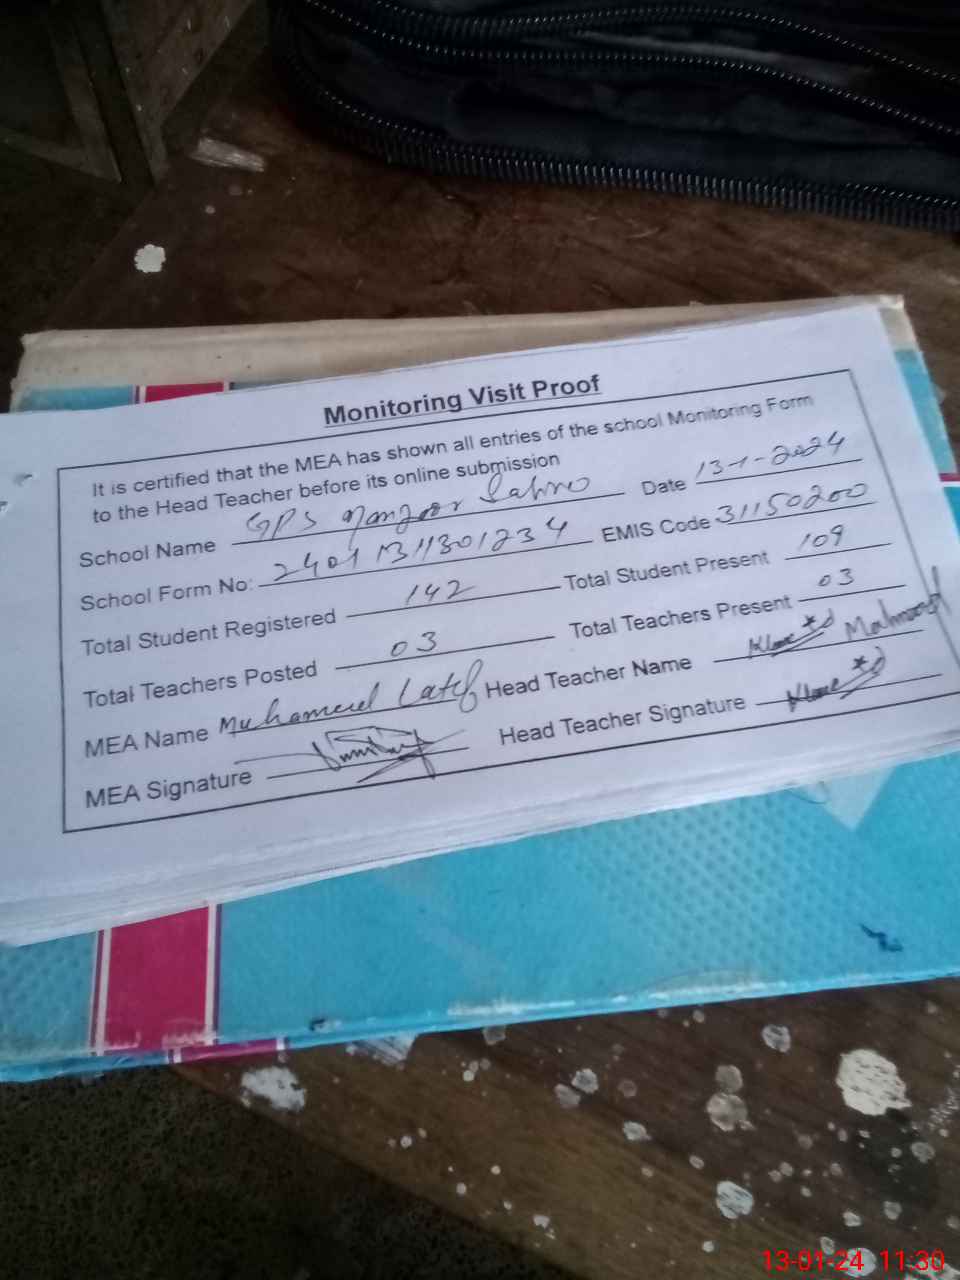 Monitoring Visit Proof
It is certified that the MEA has shown all entries of the school Monitoring Form
to the Head Teacher before its online submission
School Name GPS Manzoor Date 13-1-2024
School Form No: 24011311301234 EMIS Code 31150200
Total Student Registered 142 Total Student Present 109
Total Teachers Posted 03 Total Teachers Present 03
MEA Name Muhamed Latef Head Teacher Name Mahmood
MEA Signature Head Teacher Signature
13-01-24 11:30